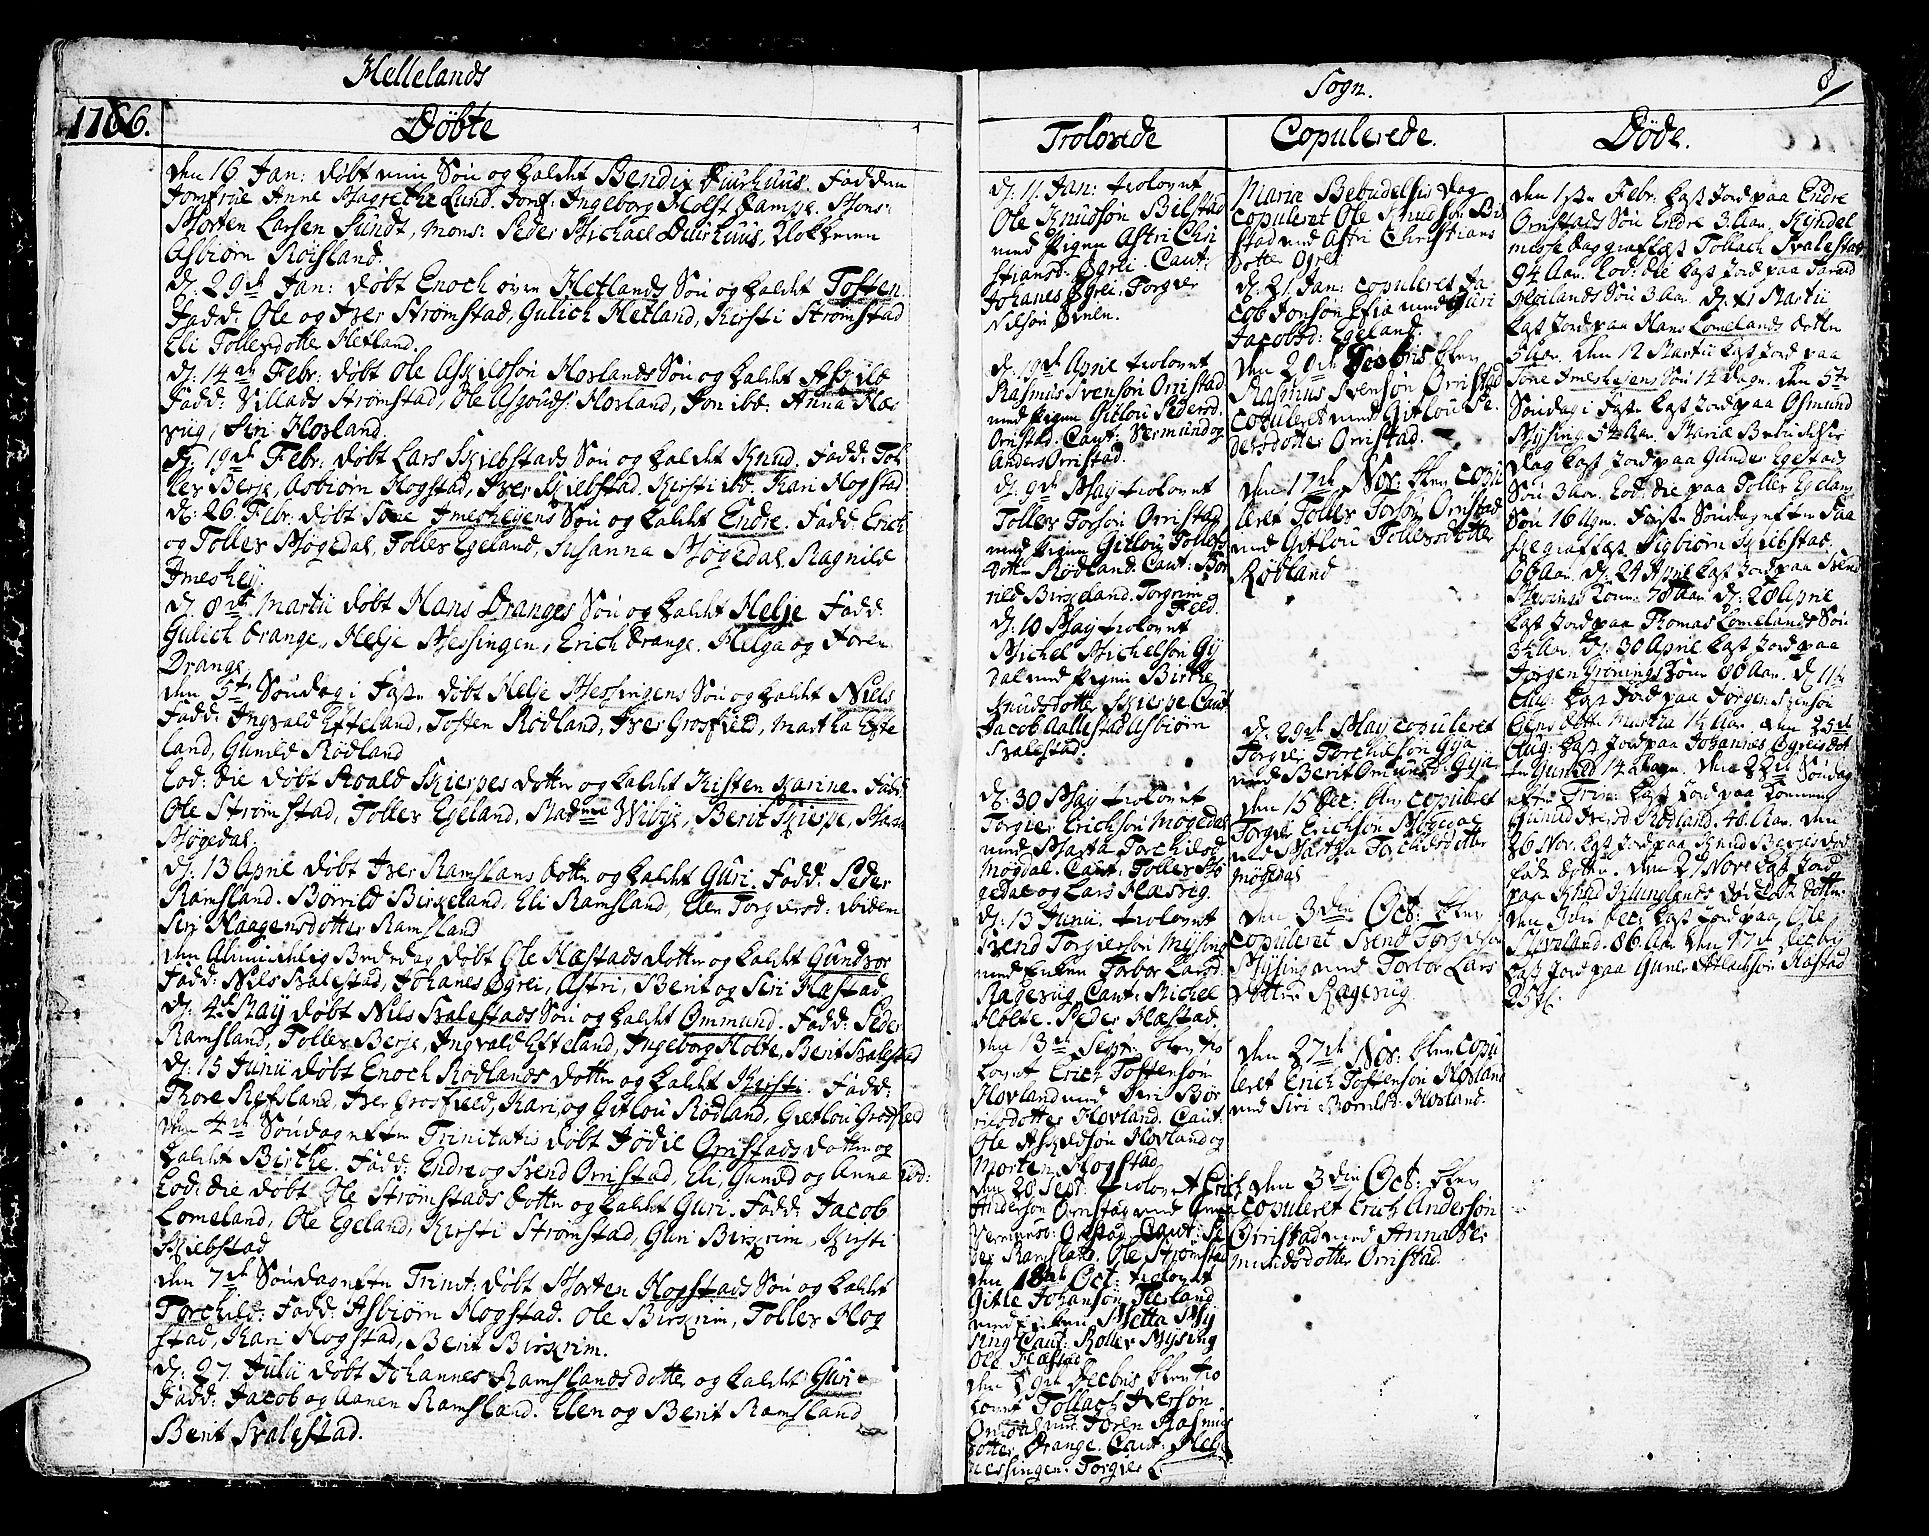 Hellelands
1766.
Døbte
den 16 Jan: døbt min Søn og kaldt Bendix Duurhuus. Fadden
Jomfrue Anne Magrethe Lund. Jomf: Ingeborg Holst Mons:
Morten Larsen Sundt, Mons: Peder Michael Duurhuus,
Asbiørn Røisland.
d: 29de Jan: døbt Enoch Hetlands Søn og kaldt Tosten
Fadd: Ole og Iver Strømstad, Gulich Hetland, Kirsti Strømstad
Eli Tollevsdotter Hetland.
d: 14de Febr: døbt Ole Askildsøn Hovlands Søn og kaldt Askild
Fadd: Villads Strømstad, Ole Asgouds: Hovland, Jon ibd: Anna Hæs
vug, Siri Hovland.
d: 19de Febr: døbt Lars Skiebstads Søn og kaldt Knud. Fadd: Tol
lev Berje, Asbiørn Hogstad, Iver Skiebstad. Kirsti ibd: Kari Hogstad
d: 26 Febr: døbt Sone Imeshejens Søn og kaldt Endre. Fadd: Erich
og Tollev Møgedal, Tollev Egeland, Susanna Møgedal. Ragnild
Imeshej.
d: 8de Martii døbt Hans Dranges Søn og kaldt Helje Fadd:
Gulich Drange, Helje Messingen, Erich Drange. Helga og Joren
Drange
den 5te Søndag i Faste døbt Helje Messingens Søn og kaldt Niels
Fadd: Ingvald Efteland, Tosten Rødland, Iver Grosfield, Martha Efte
land, Gunild Rødland
Eod: die døbt Roald Skierpes dotter og kaldt Kisten Karine. Fadd:
Ole Strømstad, Tollev Egeland, Madme Wibye, Berit Skierpe,
Møgedal.
d: 13 April døbt Iver Ramslans dotter og kaldt Guri. Fadd: Peder
Ramsland. Børrild Birkeland, Eli Ramsland, Elen Torgersd: ibidem
Siri Haagensdotter Ramsland
den Almindelig Bededag døbt Ole Hæstads dotter og kaldt Gundvor
Fadd: Nils Svalestad, Johanes Øgrei, Astri, Berit og Siri Hæstad
d: 4de May døbt Nils Svalestads Søn og kaldt Ommund. Fadd: Peder
Ramsland, Tollev Berje, Ingvald Efteland, Ingeborg Holte, Berit Svalestad
d: 15 Junii døbt Enoch Rødlands dotter og kaldt Kirsti. Fadd:
Thore Refsland, Iver Grosfield, Kari og Gitlou Rødland, Gietlou Grosfield
den 4de Søndag efter Trinitatis døbt Jødie Orristads dotter og
kaldt Birthe. Fadd: Endre og Svend Orristad, Eli, Gunild og Anna ibd:
Eod: die døbt Ole Strømstads dotter og kaldt Guri. Fadd: Jacob
Lomeland, Ole Egeland, Kirsti Strømstad, Guri Birkrim, Kirsti
Skiebstad
den 7de Søndag efter Trinit: døbt Morten Hogstads Søn og kaldt
Torchild: Fadd: Asbiørn Hogstad. Ole Birkrim, Tollev Hog
stad, Kari Hogstad, Berit Birkrim.
d: 27. Julii døbt Johannes Ramslands dotter og kaldt Guri
Fadd: Jacob og Aanen Ramsland. Elen og Berit Ramsland
Berit Svalestad.
Sogn.
8
Trolovede
d: 11 Jan: trolovet
Ole Knudsøn Bilstad
med Pigen Astri Chri
stiansd: Øgrei. Caut:
Johanes Øgrei. Torgier
Nilsøn
d: 19de April trolovet
Rasmus Svensøn Orristad
med Pigen Gitlou Pedersd:
Orristad. Caut: Vermund og
Anders Orristad.
d: 9de May trolovet
Tollev Torsøn Orristad
med Pigen Gitlou Tollevs
dotter Rødland. Caut: Bør
rild Birkeland. Torgrim
Feed.
d: 10 May trolovet
Michel Michelsøn Gÿ
dal med Pigen Birthe
Knudsdotter Skierpe Caut:
Jacob Aallestad Asbiørn
Svalestad.
d: 30 May trolovet
Torgier Erichsøn Møgedal
med Marta Torchildsd:
Møgdal. Caut: Tollev Mø
gedal og Lars Hæsvig.
d: 13 Junii. trolovet
Svend Torgiersøn Mysing
med Enken Torbor Larsd:
Ragevug. Caut: Michel
Holte. Peder Hæstad.
den 13de Sept: blev tro
lovet Erich Tostensøn
Hovland med Siri Bør
rilsdotter Hovland. Caut:
Ole Askildsøn Hovland og
Morten Hogstad
den 28 Sept: trolovet Erich
Andersøn Orristad med Anna
Vermunsd: Orristad. Caut: Pe
der Ramsland. Ole Strømstad
den 18de Oct: trolovet
Gitle Johansøn
med Enken Metta My
sing Caut: Rollev Mysing
Ole Hæstad
den 29de Decbris blev tro
lovet Tollach Iversøn
med Joren Rasmus
dotter Drange. Caut: Helje
Messingen. Torgier
Copulerede.
Mariæ Bebudelses dag
copuleret Ole Knudsøn Bil
stad med Astri Christians
dotter Øgrei
d: 21 Jan: copuleret Ja
cob Jonsøn med Guri
Jacobsd: Egeland.
den 20de blev
Rasmus Svensøn Orristad
copuleret med Gitlou Pe-
dersdotter Orristad.
den 17de Nov: blev copu
leret Tollev Torsøn Orristad
med Gitlou Tollevsdotter
Rødland
d: 29de May copuleret
Torgier Torchilsøn Gÿa
med Berit Omunsd: Gÿa
den 15 Dec: blev copuleret
Torgier Erichsøn Møgedal
med Martha Torchildsdotter
Møgedal
den 3die Oct: blev
copuleret Svend Torgiersøn
Mysing med Torbor Lars
dotter Ragevug.
den 27de Nov: blev copu
leret Erich Tostensøn Hovland
med Siri Børrilsd: Hovland.
den 3die Oct: blev
copuleret Erich Andersøn
Orristad med Anna Ver
mundsdotter Orristad.
Døde.
den 1ste Febr: kast Jord paa Endre
Orristads Søn Endre 3 Aar. Kyndel
messe dag graffæst Tollach Svalestad
94 Aar. Eod: die kast Jord paa Tarald
Søn 3 Aar. d: Martii
kast Jord paa Hans Lomelands dotter
5 Aar. den 12 Martii kast Jord paa
Sone Imeshejens Søn 14 dagr. den 5te
Søndag i Faste kast Jord paa Osmund
Mysing. 54 Aar. Mariæ Bebudelses
dag kast Jord paa Gunder Egestads
Søn 3 Aar. Eod: die paa Tollev Egelans
Søn 16 Ugr. Første Søndag efter Paa
ske graffæst Sigbiørn Skiebstad.
66 Aar. d: 24 April kast Jord paa Svend
Mysings Kone 78 Aar. d: 28 April
kast Jord paa Thomas Lomelands Søn
3½ Aar. d: 30 April kast Jord paa
Jørgen Grønings Kone 80 Aar. d: 11te
Aug: kast Jord paa Jørgen
dotter Martha 14 Aar. den 25de
Aug: kast Jord paa Johannes Øgreis dot
ter Gunild 14 dage. den 22de Søndag
efter Trin: kast Jord paa Konnen
Gunild Iversd Rødland. 40 Aar. den
26 Nov. kast Jord paa Knud Berjes død
fød dotter. den 27 Novr kast Jord
paa dotter.
den Dec: kast Jord paa Ole
86 Aar. den 17de Decbris
kast Jord paa Guner Atlachsøn Hæstad